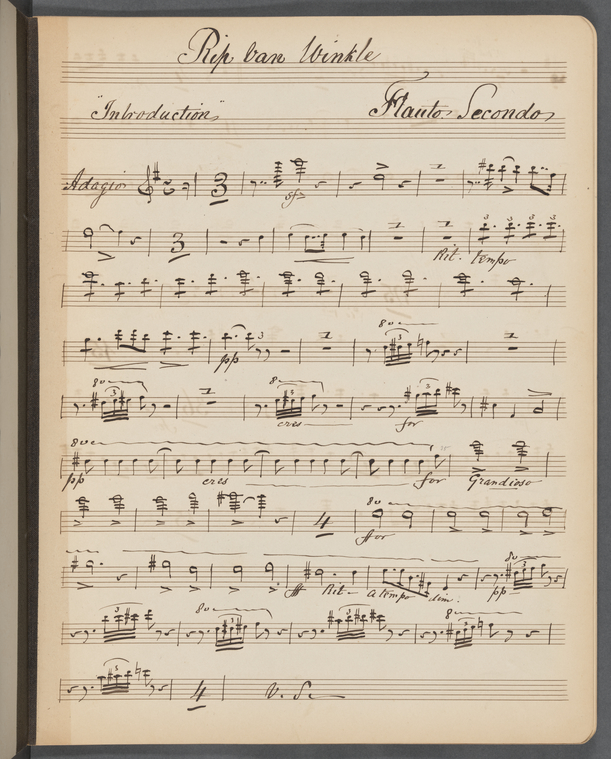 Rip Van Winkle
"Introduction" Flauto Secondo
Adagio 3 sfz
3 Rit. tempo 3 3 3 3
pp 3 8va
8va 3 8 3 cres for 3
8va pp cres for Grandioso
4 ffor 8va
ff Rit. a tempo dim. pp 8va 3
3 8va 3 3 8va 3
3 4 V. S.